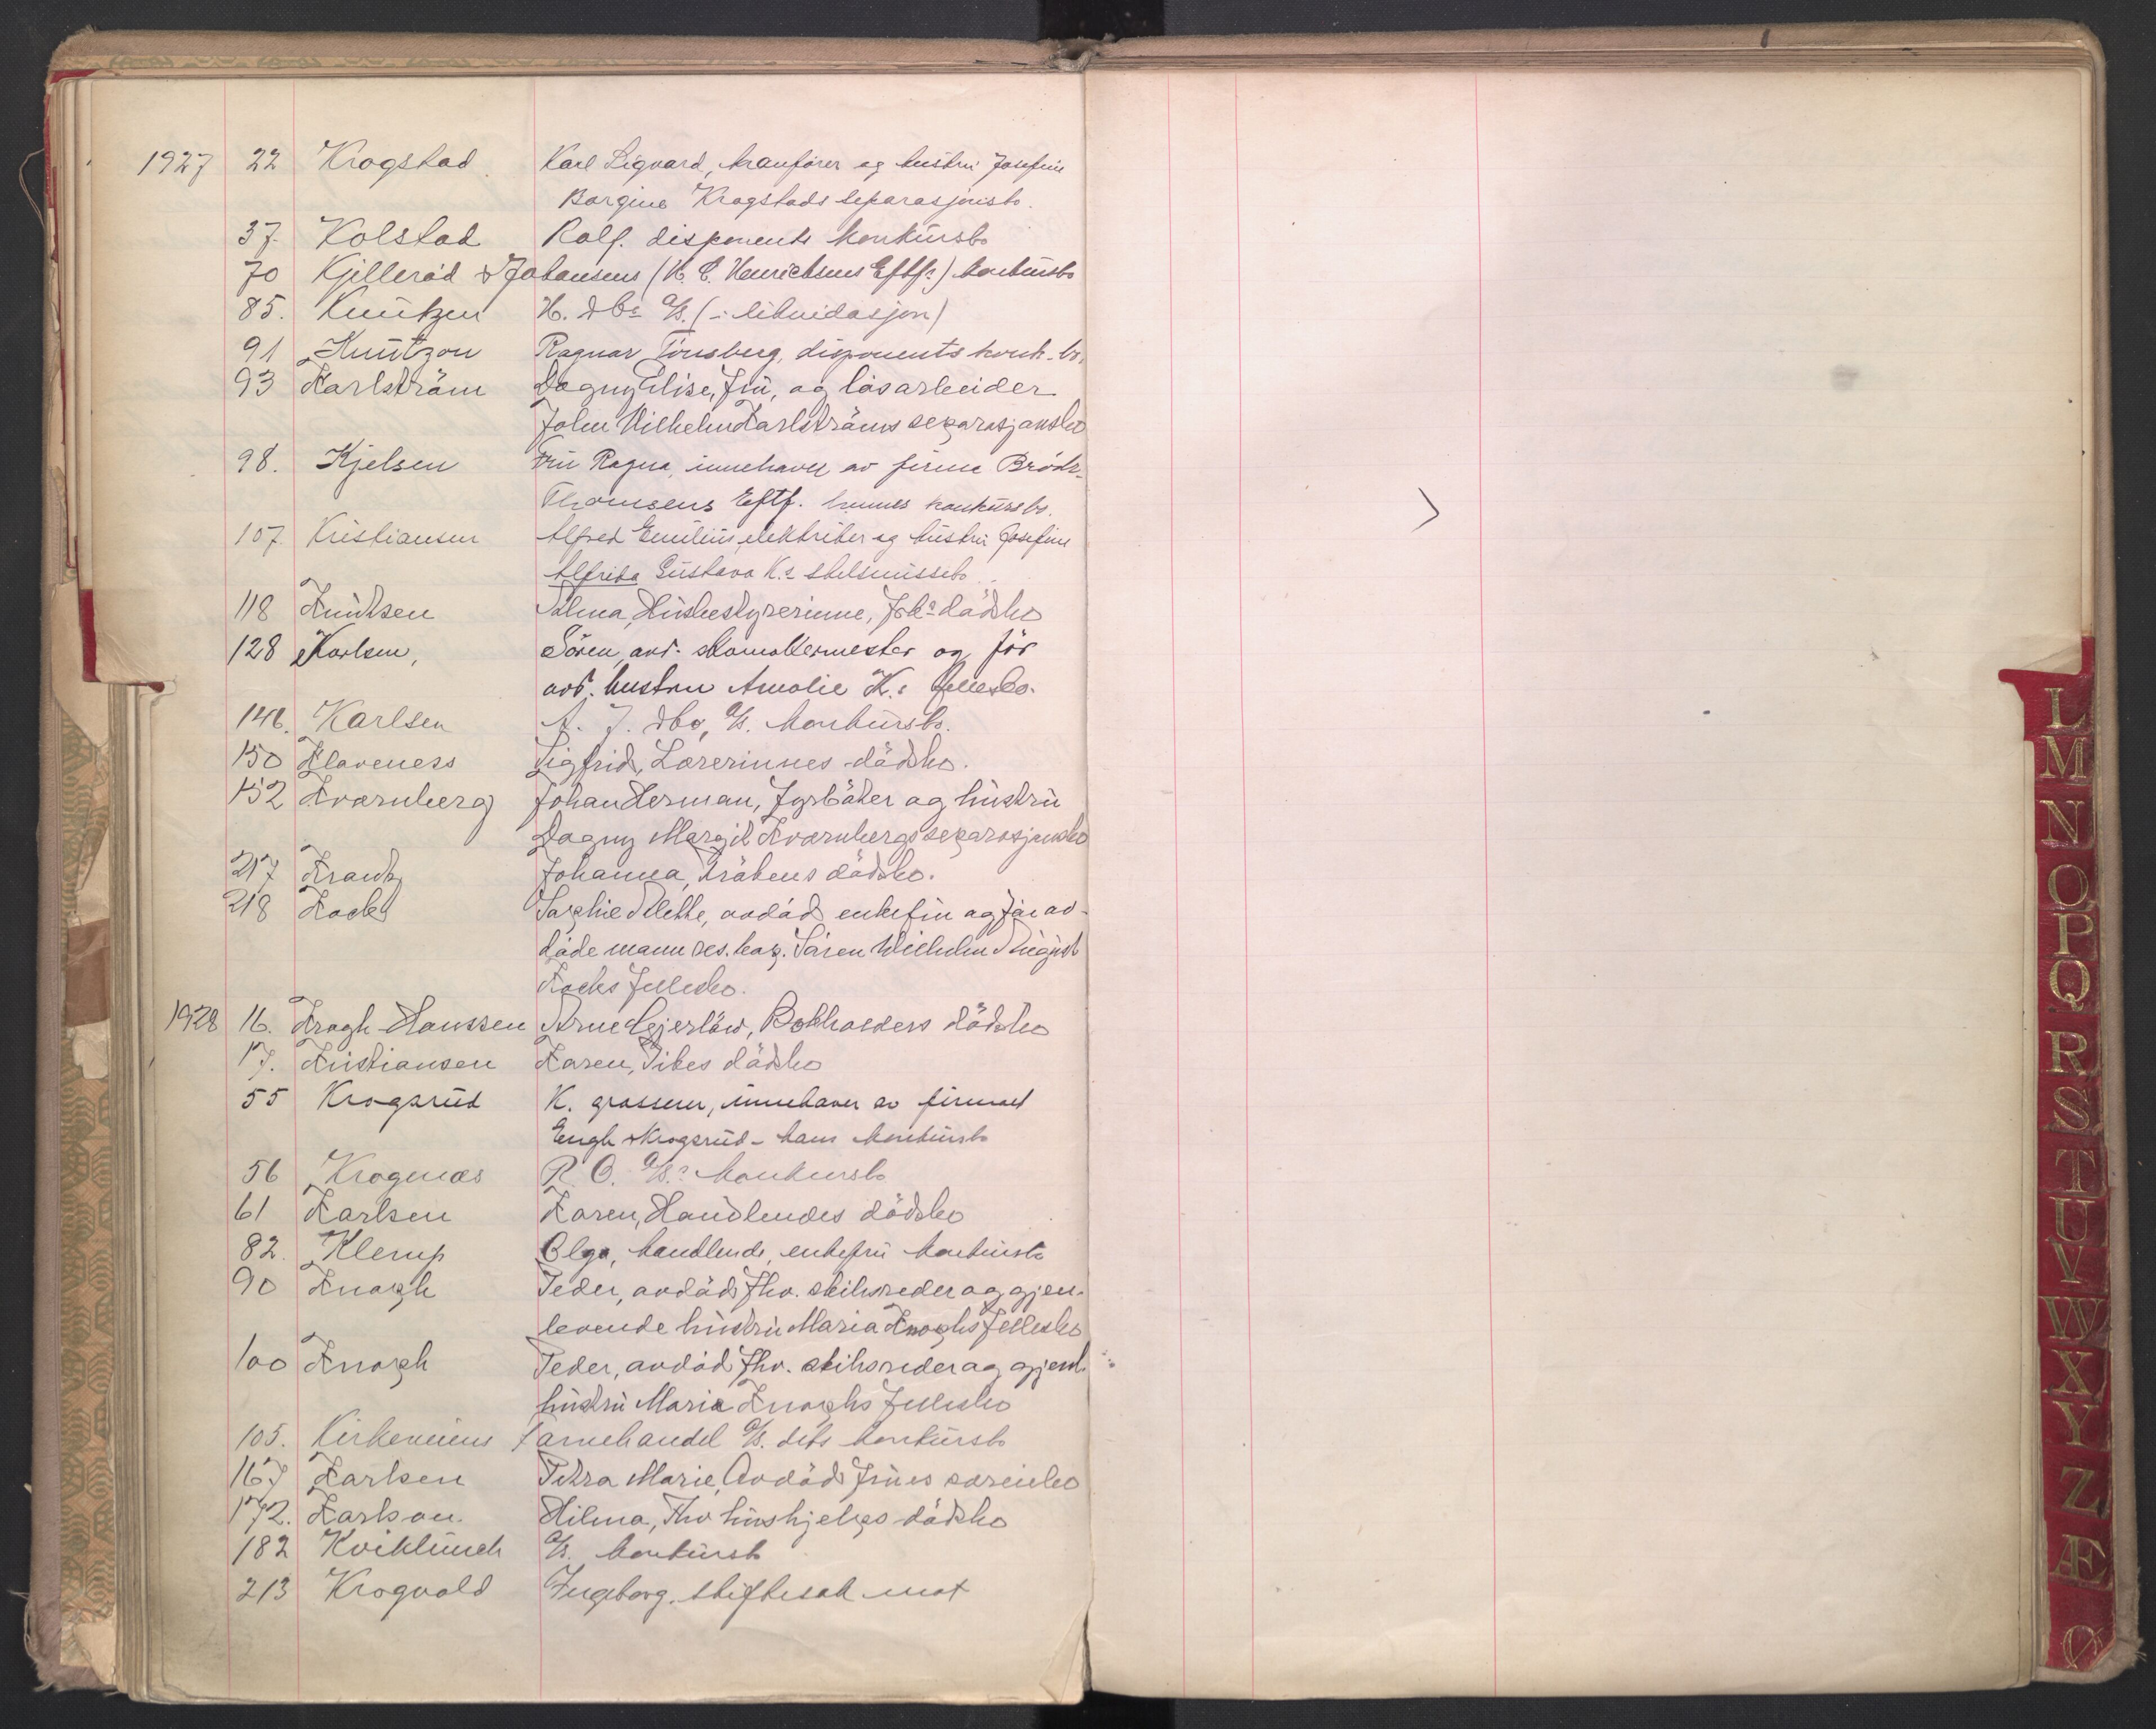 1927 22 Krogstad Karl Sigvard, kranfører og hustru Josefine
Borgine Krogstads separasjonsbo.
37. Kolstad Rolf. disponents konkursbo
70 Kjelleråd & Johansens (H. C. Henrichsens Eftf.s) konkursbo
85. Knutzen H. & Co A/S. (i likvidasjon)
91 Knutzon Ragnar Tönsberg, disponents konk. bo.
93 Karlström Dagny Elise, fru, og låsarbeider
John Wilhelm Karlströms separasjonsbo
98. Kjelsen Fru Ragna, innehaver av firma Brödr.
Thomsens Eftf. hennes konkursbo.
107. Kristiansen Alfred Emilius, elektriker og hustru Josefine
Alfrida Gustava K.s skilsmissebo
118 Knudsen Alma, Husbestyrerinne, dödsbo
128 Karlsen, Sören, avd. skomakermester og för
avd. hustru Amalie K.s fellesbo.
146. Karlsen A. J. & Co, A/S. konkursbo.
150 Klaveness Sigfrid, Lærerinnes dödsbo.
152 Kvarnberg Johan Herman, Fyrböter og hustru
Dagny Margit Kvarnbergs separasjonsbo
217 Krantz Johanna, Frökens dödsbo.
218 Kock Sophie Mette, avdöd enkefru og för av-
döde mann res. kap. Sören Wilhelm August
Kocks fellesbo.
1928 16. Kragh-Hanssen Arne Gjerlöw, Bokholders dödsbo
17. Kristiansen Karen, Pikes dödsbo
55 Krogsrud K. grosserer, innehaver av firmaet
Engh & Krogsrud - hans konkursbo
56 Krognæs R. O. A/S.s konkursbo
61 Karlsen Karen, Handlendes dödsbo
82. Klerup Olga, handlende, enkefru konkursbo
90 Knoph Peder, avdöd fhv. skibsreder og gjen-
levende hustru Maria Knophs fellesbo
100 Knoph Peder, avdöd fhv. skibsreder og gjenl.
hustru Maria Knophs fellesbo
105. Kirkeveiens Farvehandel A/S. dets konkursbo
167 Karlsen Petra Marie, Avdöd Frues særeiebo
172. Karlson. Hilma, Fhv. hushjelps dödsbo
182 Kviklunch A/S. konkursbo
213 Krogvold Ingeborg. skiftesak mot
L
M
N
O
P
Q
R
S
T
U
V
W
X
Y
Z
Æ
Ø